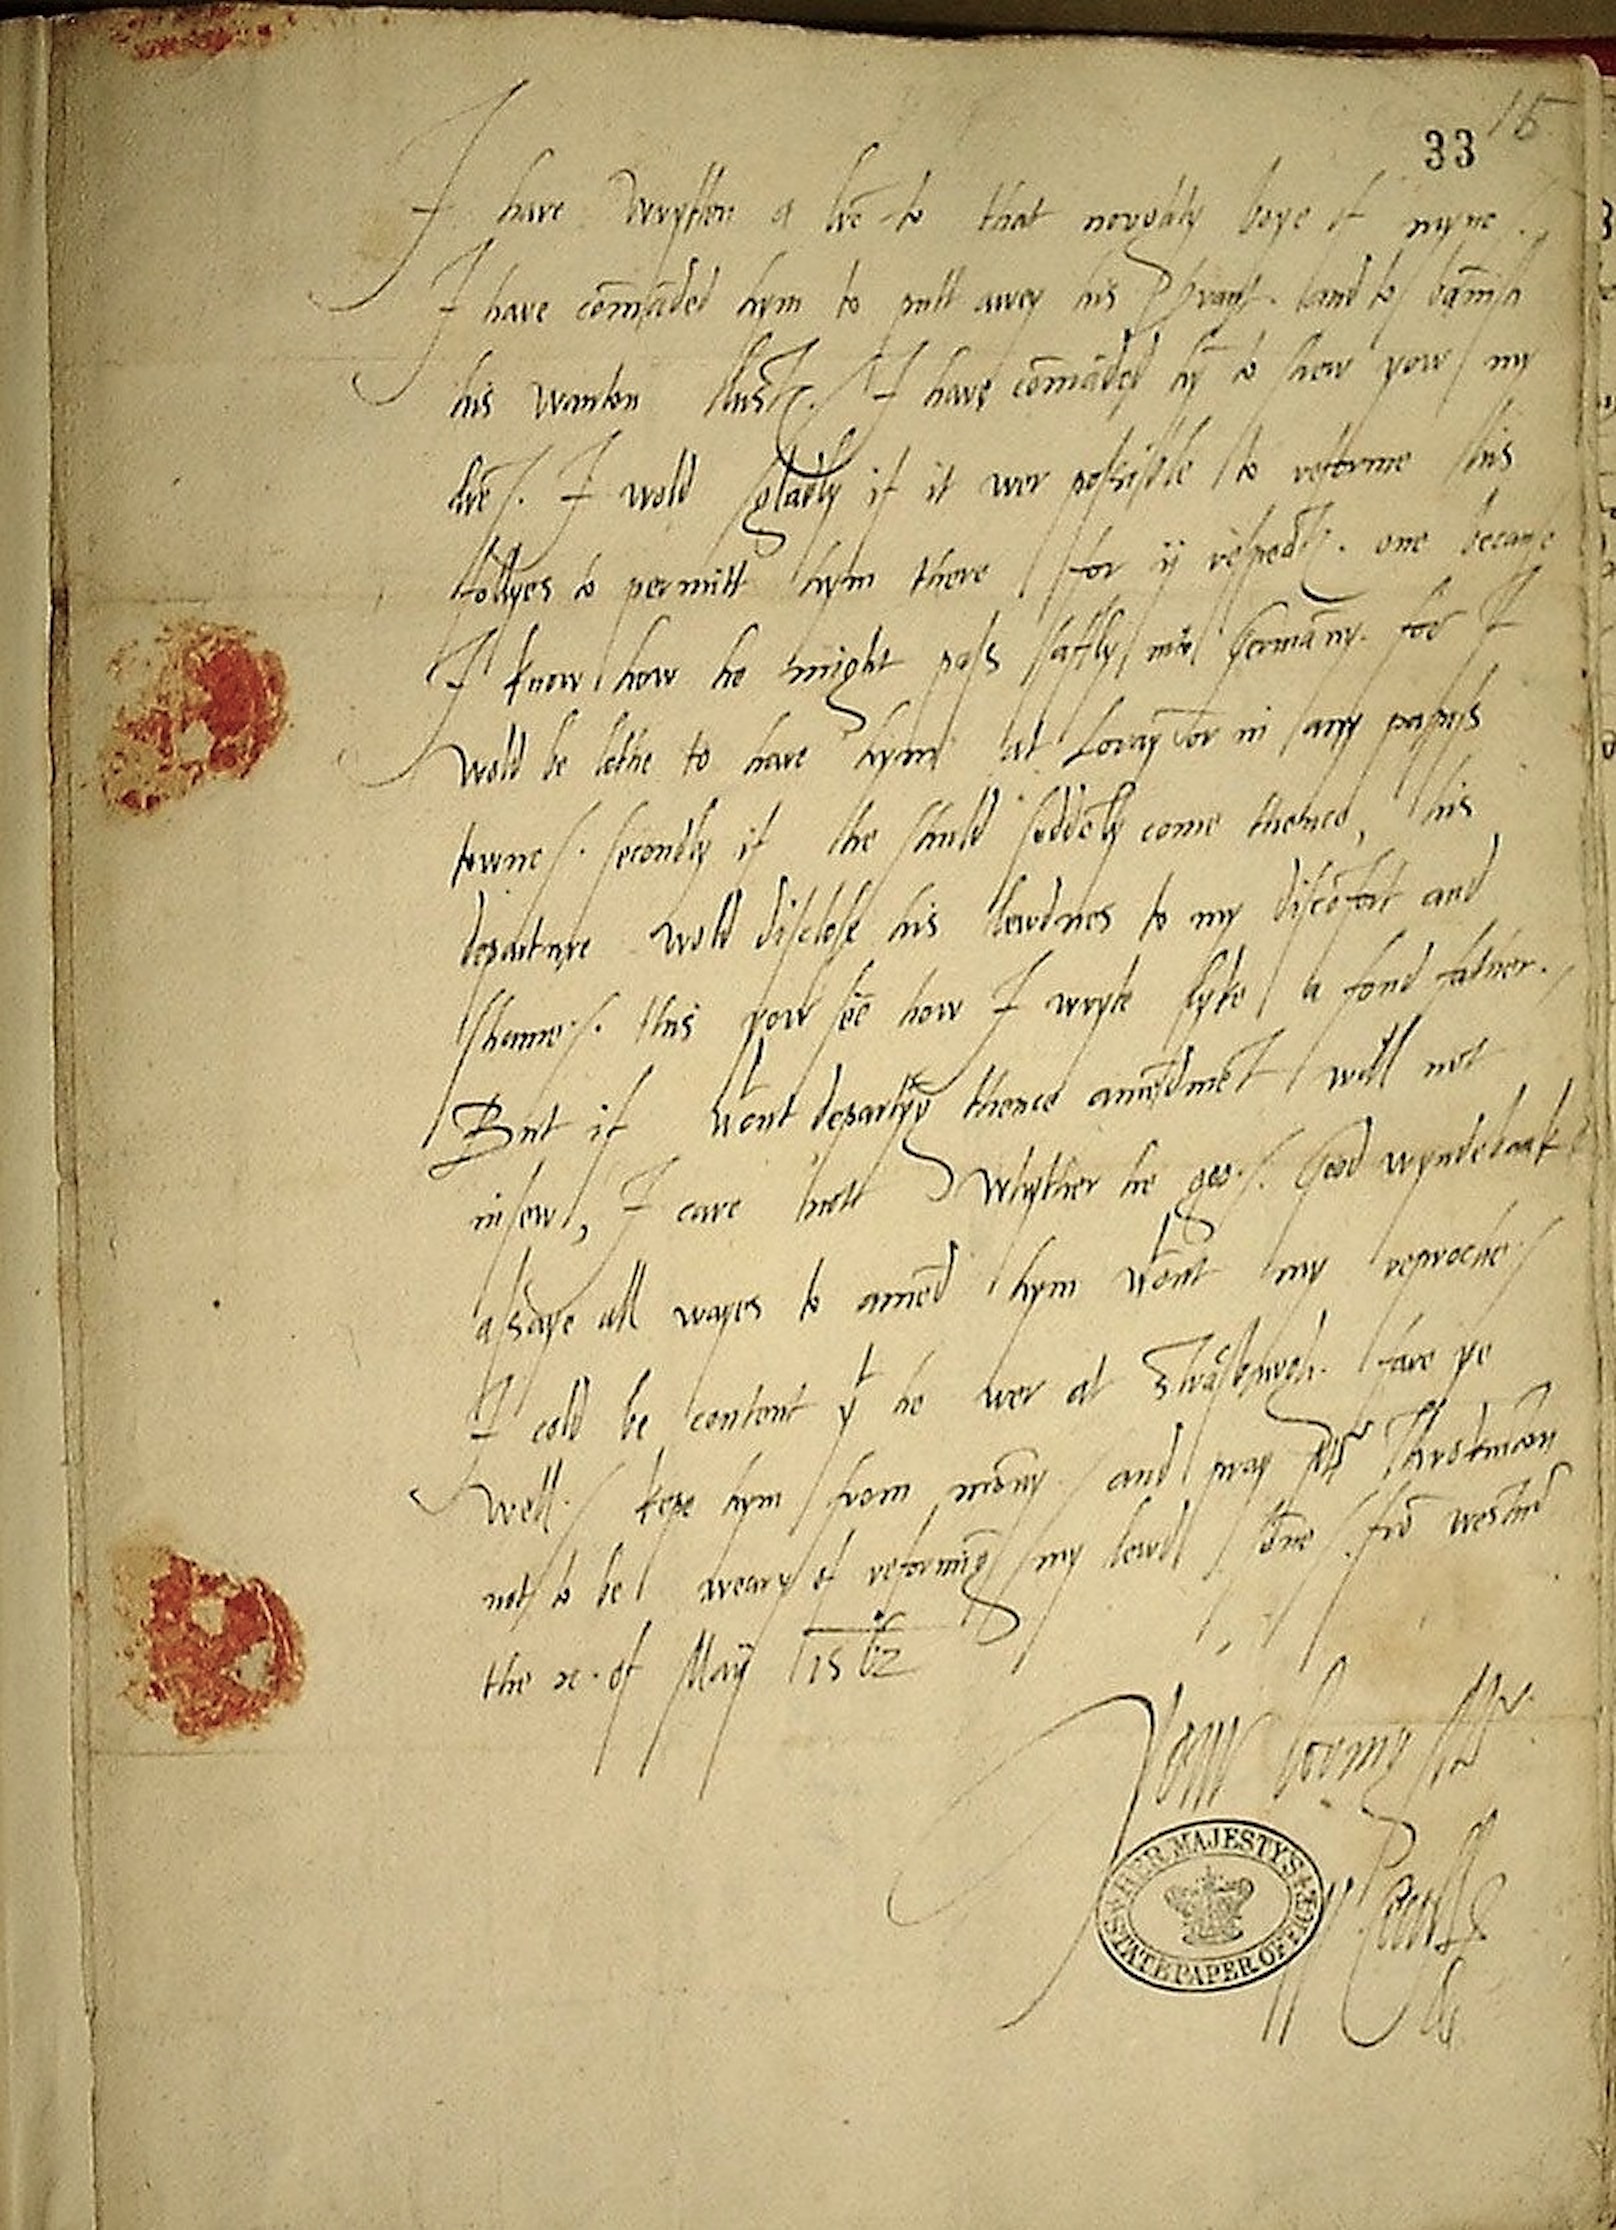 33 15
I have wrytten a lrē to that noughty boye of myne.
I have cōmāded hym to putt awey his servant. and to banish
his wanton lusts. I have cōmāded hȳ to shew yow my
lrēs. I wold gladly if it wer possible to reforme his
follyes to permitt hym there for ij respects. one becaus
I know how he might pass saffly into Germany. for I
wold be lothe to have hym at Lovayn or in any papists
townes. secondly if he shuld soddēly come thence, his
departure wold disclose his lewdnes to my discōfort and
shame. thus yow see how I wryte lyke a fond father.
But if wᵗout departyg thence amēdmēt will not
insew, I care nott whyther he goo. Good wyndebank
assaye all wayes to amēd hym wᵗout my reproche
I cold be content yᵗ he wer at Strasburgh. fare ye
well. kepe hym from mony. and pray Mʳ Throkmortō
not to be weary of reformīg my lewd sōne. frō westmʳ
the x. of Maij 1562
Your lovīg Mʳ
W Cecill
HER MAJESTY'S STATE PAPER OFFICE